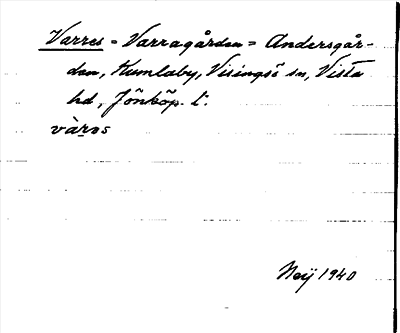 Varres = Varragården = Andersgår-
den, Kumlaby, Visingsö sn, Vista
hd, Jönköp. l.
vàrəs
Neij 1940